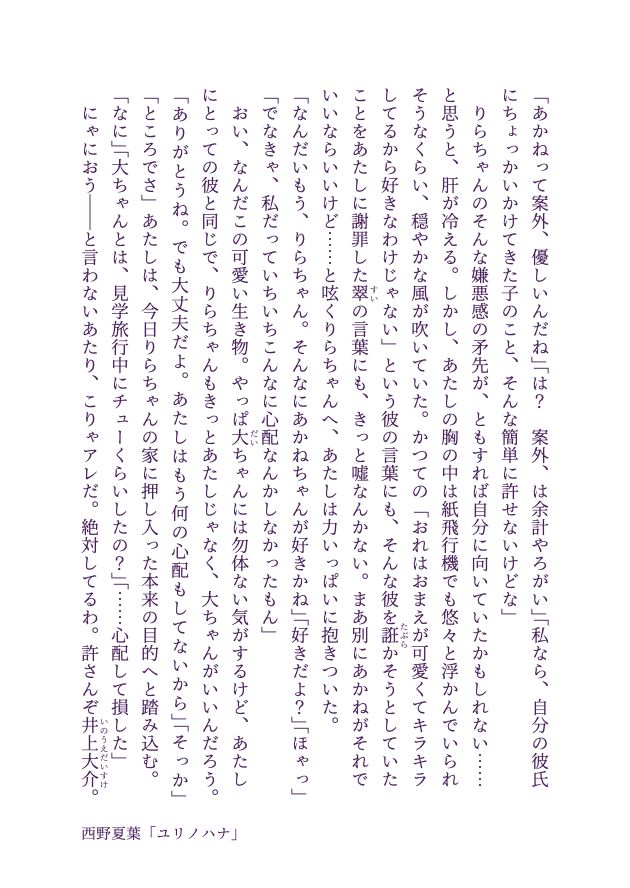 「あかねって案外、優しいんだね」「は？　案外、は余計やろがい」「私なら、自分の彼氏
にちょっかいかけてきた子のこと、そんな簡単に許せないけどな」
　りらちゃんのそんな嫌悪感の矛先が、ともすれば自分に向いていたかもしれない……
と思うと、肝が冷える。しかし、あたしの胸の中は紙飛行機でも悠々と浮かんでいられ
そうなくらい、穏やかな風が吹いていた。かつての「おれはおまえが可愛くてキラキラ
してるから好きなわけじゃない」という彼の言葉にも、そんな彼を誑かそうとしていた
ことをあたしに謝罪した翠の言葉にも、きっと嘘なんかない。まあ別にあかねがそれで
いいならいいけど……と呟くりらちゃんへ、あたしは力いっぱいに抱きついた。
「なんだいもう、りらちゃん。そんなにあかねちゃんが好きかね」「好きだよ？」「ほゃっ」
「でなきゃ、私だっていちいちこんなに心配なんかしなかったもん」
　おい、なんだこの可愛い生き物。やっぱ大ちゃんには勿体ない気がするけど、あたし
にとっての彼と同じで、りらちゃんもきっとあたしじゃなく、大ちゃんがいいんだろう。
「ありがとうね。でも大丈夫だよ。あたしはもう何の心配もしてないから」「そっか」
「ところでさ」あたしは、今日りらちゃんの家に押し入った本来の目的へと踏み込む。
「なに」「大ちゃんとは、見学旅行中にチューくらいしたの？」「……心配して損した」
　にゃにおう――と言わないあたり、こりゃアレだ。絶対してるわ。許さんぞ井上大介。
西野夏葉「ユリノハナ」